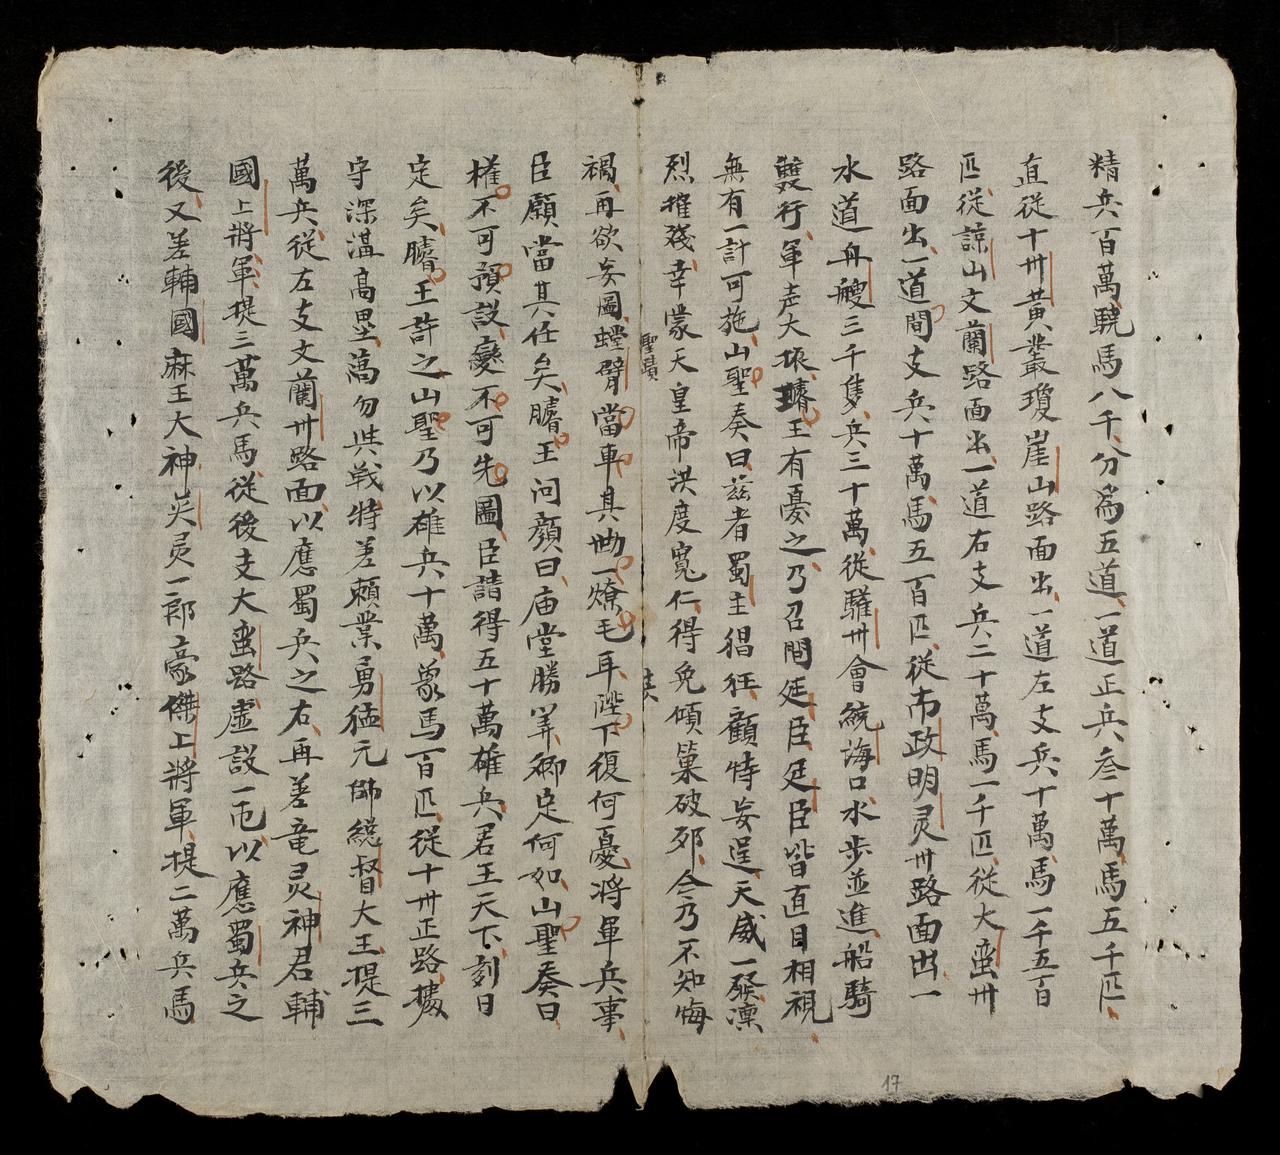 精兵百萬驍馬八千分為五道一道正兵叄十萬馬五千匹
直從十卅黃叢瓊崖山路面出一道左支兵十萬馬一千五百
匹從諒山文蘭路面出一道右支兵二十萬馬一千匹從大蛮卅
路面出一道間支兵十萬馬五百匹從布政明灵卅路面出一
水道舟艘三千隻兵三十萬從驩卅會統海口水步並進船騎
雙行軍声大振睿王有憂之乃召問廷臣廷臣皆直目相視
無有一計可施山聖奏曰茲者蜀主猖狂顧恃妄逞天威一發凛
烈摧殘幸蒙天皇帝洪度寬仁得免傾巢破卵今乃不知悔
聖蹟
禍再欲妄圖螳臂當車其勢一燎毛耳陛下復何憂將軍兵事
臣願當其任矣睿王问顏曰庙堂勝筭卿定何如山聖奏曰
權不可預設變不可先圖臣請得五十萬雄兵君王天下刻日
定矣睿王許之山聖乃以雄兵十萬象馬百匹從十卅正路據
守深溝高壘萬勿與戦特差賴業勇猛元帥總督大王提三
萬兵從左支文蘭卅路面以應蜀兵之右再差竜灵神君輔
國上將軍提三萬兵馬從後支大蛮路虚設一屯以應蜀兵之
後又差輔國麻王大神英灵一郎豪傑上將軍提二萬兵馬
17